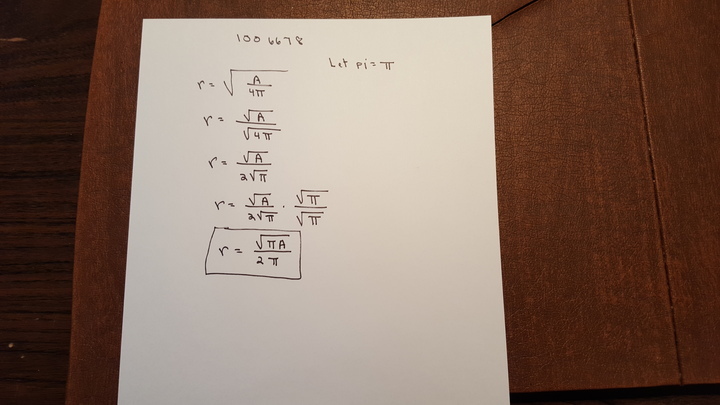 100 6678
Let pi = π
r = √(A/4π)
r = √A/√4π
r = √A/2√π
r = √A/2√π · √π/√π
r = √πA/2π